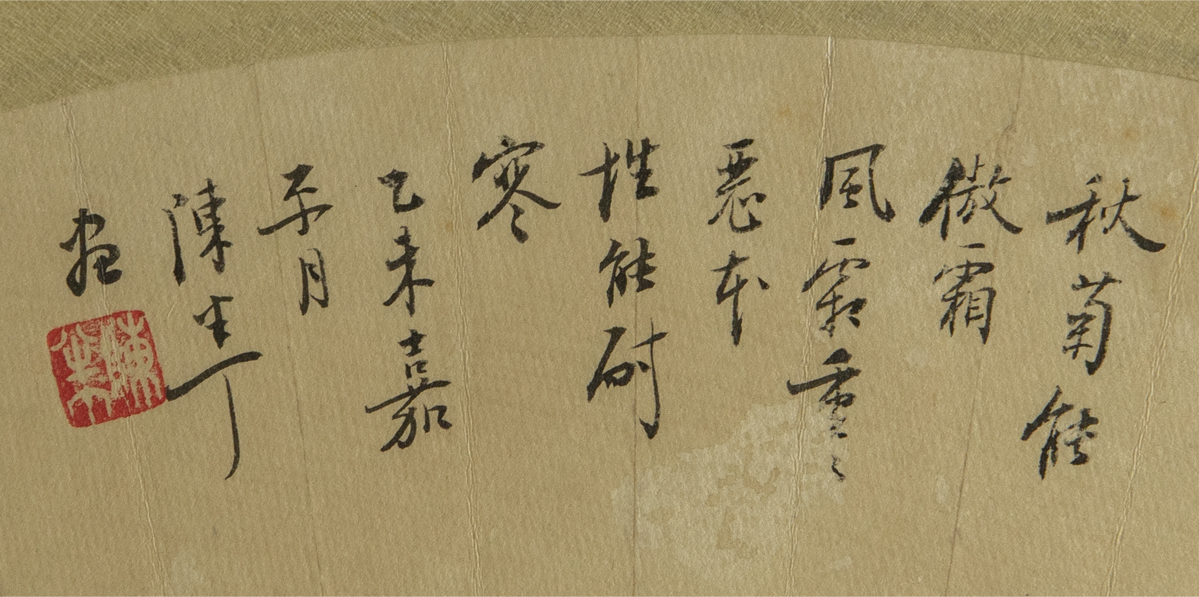 秋菊能
傲霜
風霜重〻
惡本
性能耐
寒
乙未嘉
平月
陳半丁
畫
陳年